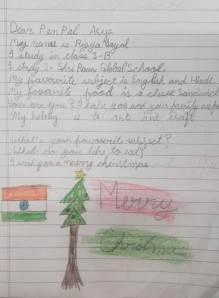 Dear Pen Pal Arya
My name is Rigya Dayal
I study in class 2-B
I study in Shri Ram Global School.
My favourite subject is English and Hindi
My favourite food is a cheese sandwich
How are you? I hope you and your family are
My hobby is to art and craft
What's your favourite subject?
What do you like to eat?
I wish you a merry christmas
Merry